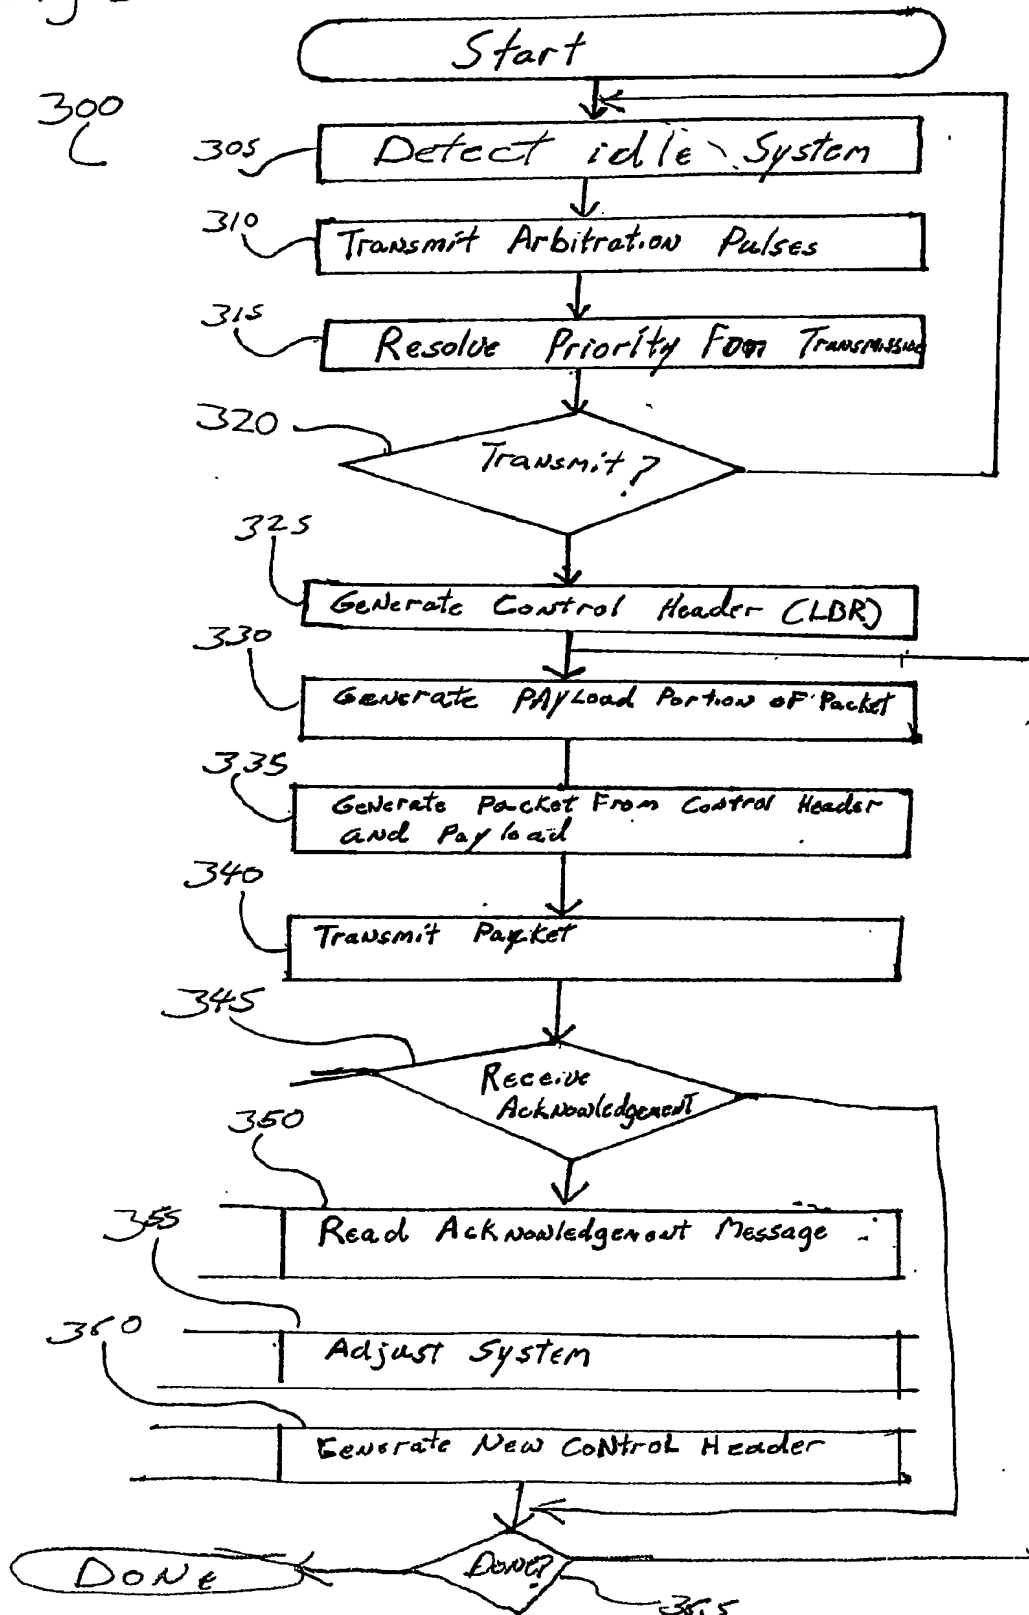 Start
300
305
Detect idle System
310
Transmit Arbitration Pulses
315
Resolve Priority From Transmission
320
Transmit?
325
Generate Control Header (LBR)
330
Generate PAYLoad Portion of Packet
335
Generate Packet From Control Header
and Payload
340
Transmit Packet
345
Receive
Acknowledgement
350
Read Acknowledgement Message
355
Adjust System
360
Generate New Control Header
DONE
Done?
365